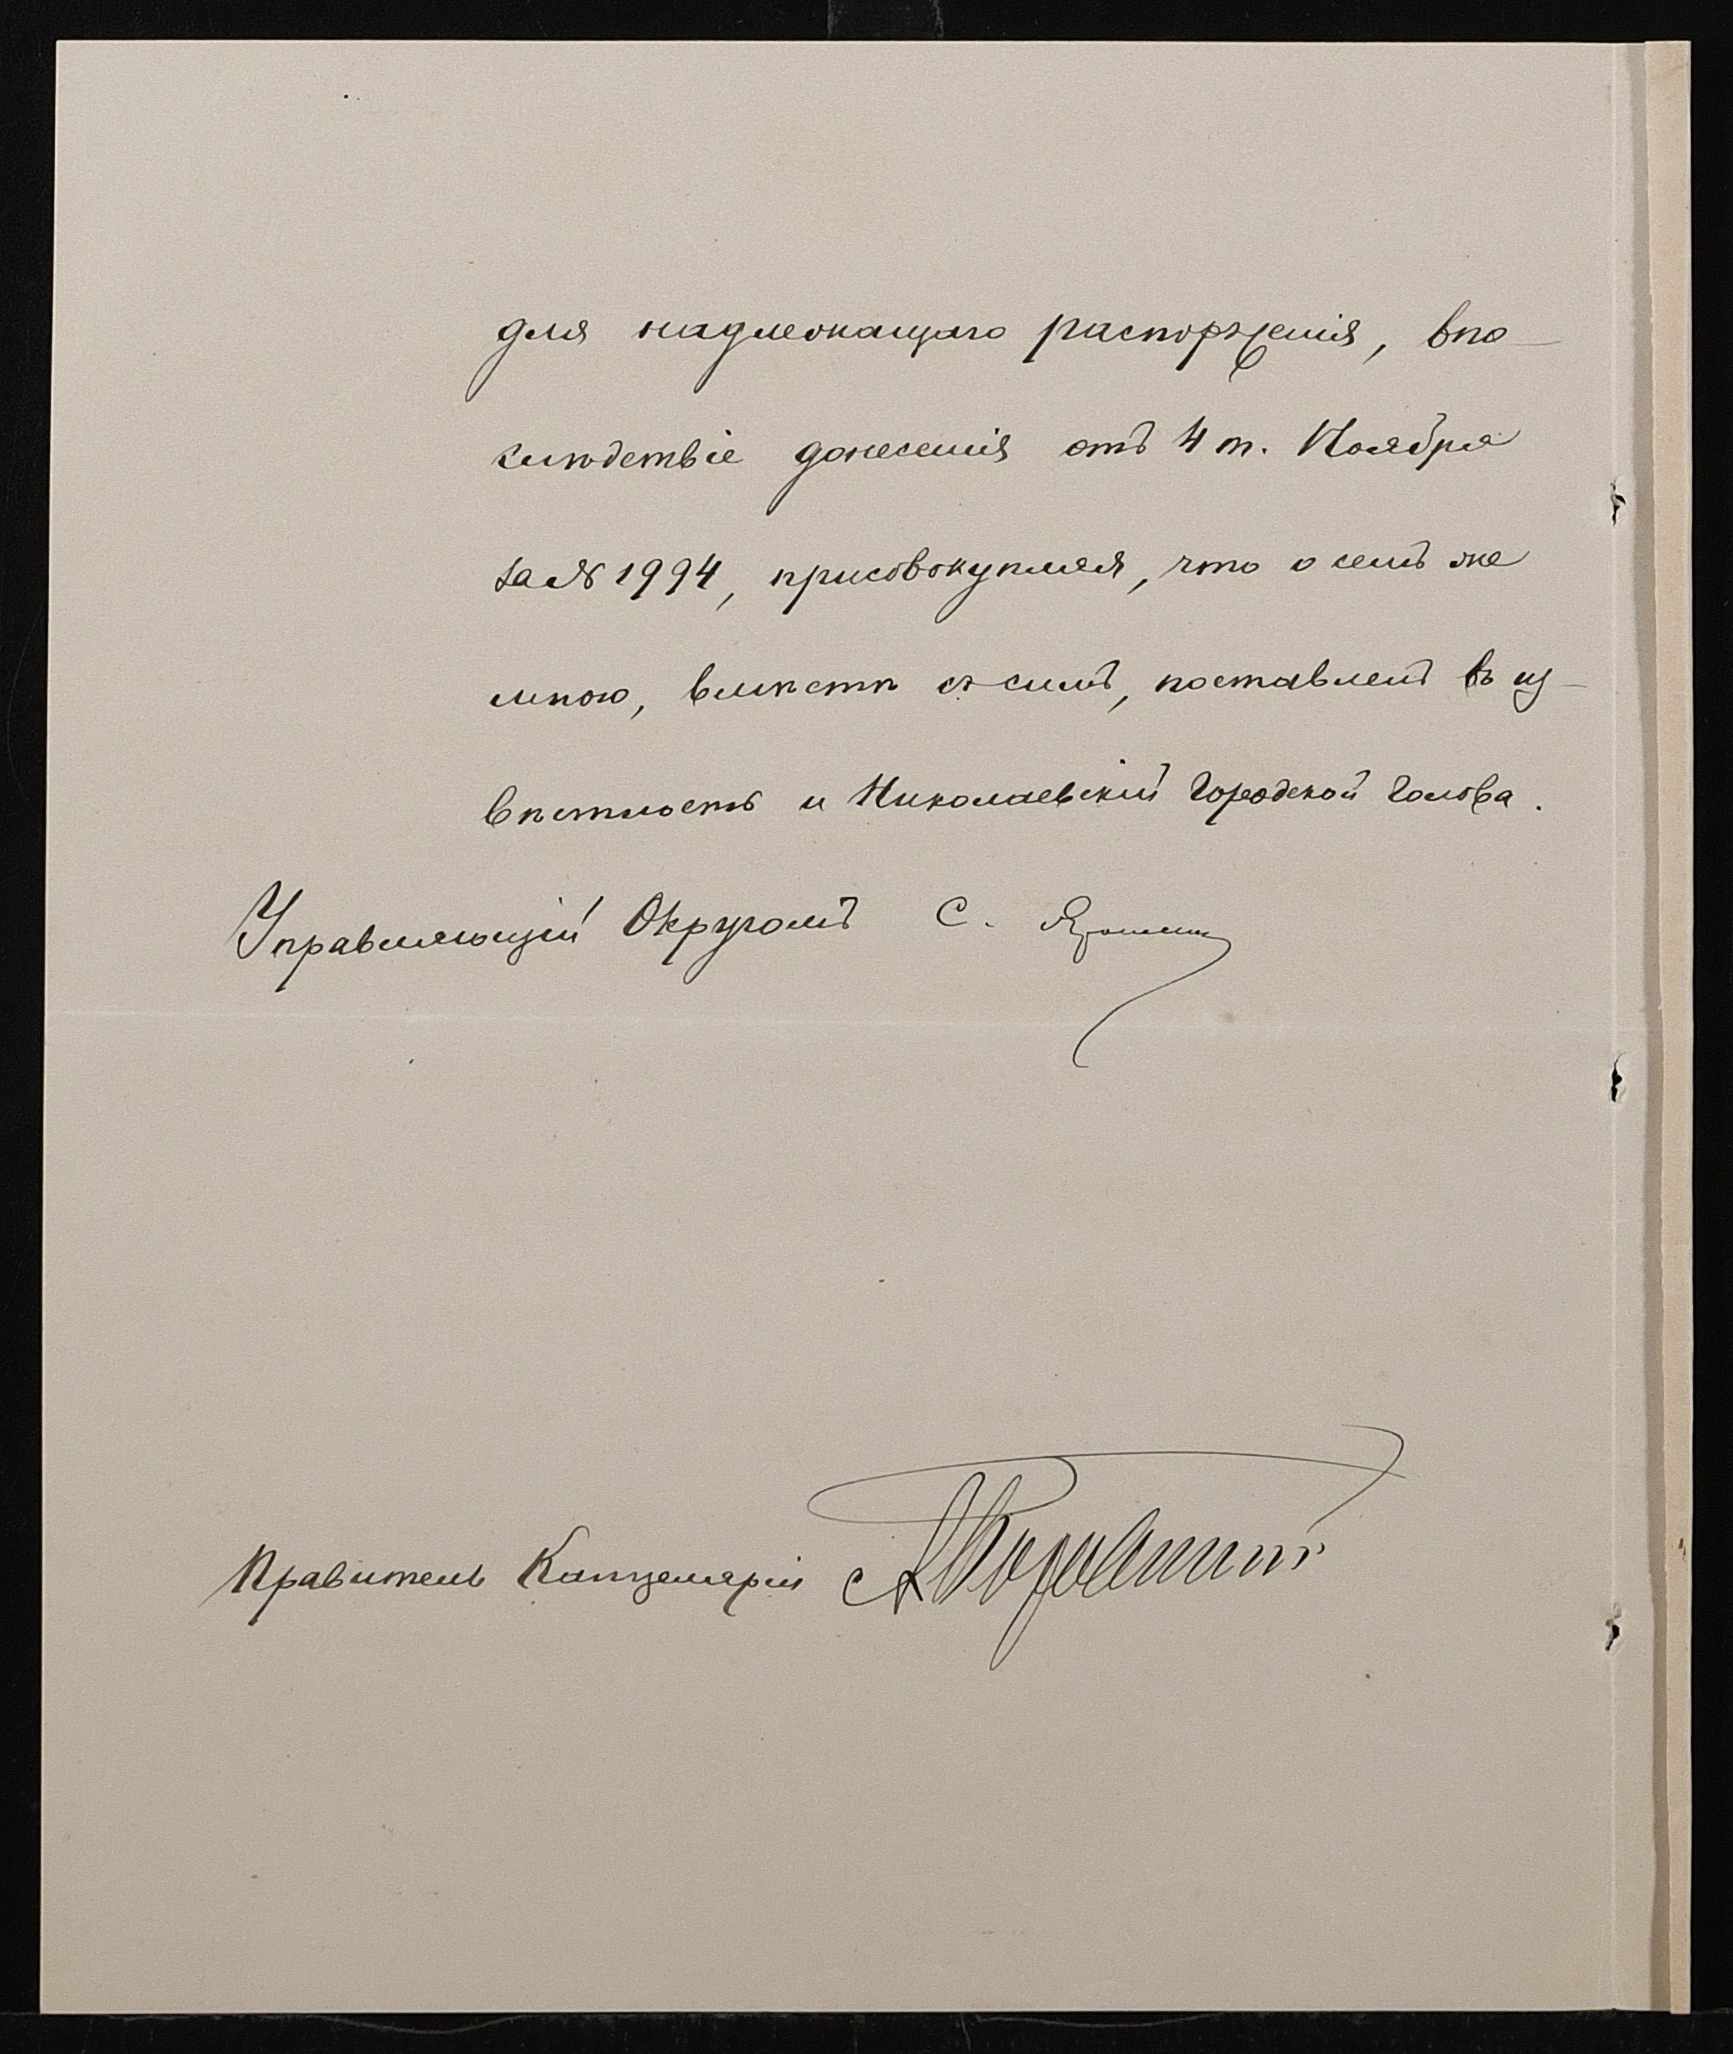 для надлежащаго распоряженія, впо-
слѣдствіе донесенія отъ 4 т. Ноября
за № 1994, присовокупляя, что о семъ же
мною, вмѣстѣ съ симъ, поставленъ въ из-
вѣстность и Николаевскій Городской Голова.
Управляющій Округомъ С.
Правитель Канцеляріи